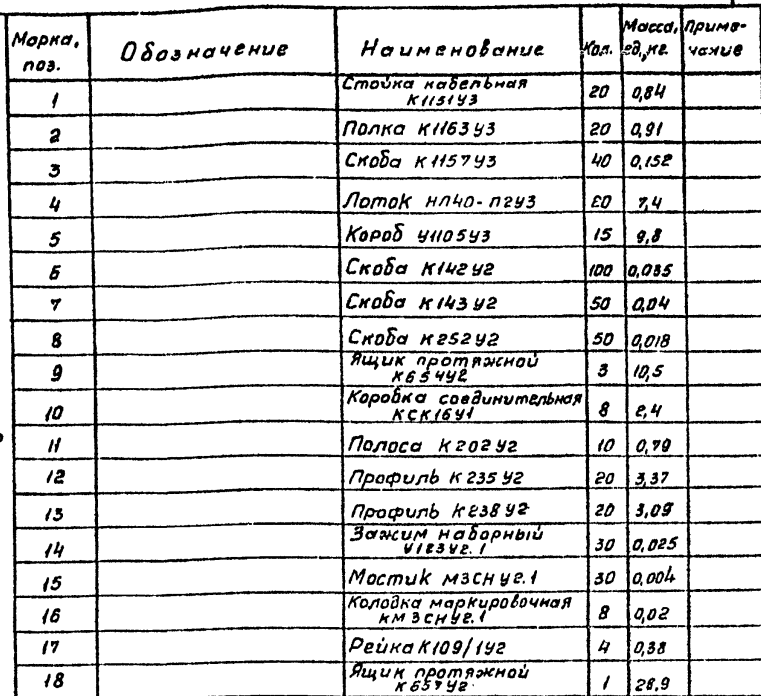 Марка, поз. Обозначение Наименование Кол. Масса, ед, кг. Приме-чание
1 Стойка кабельная
К1151У3 20 0,84
2 Полка К1163У3 20 0,91
3 Скоба К1157У3 40 0,152
4 Лоток НЛ40-П2У3 20 7,4
5 Короб У1105У3 15 9,8
6 Скоба К142У2 100 0,035
7 Скоба К143У2 50 0,04
8 Скоба К252У2 50 0,018
9 Ящик протяжной
К654У2 3 10,5
10 Коробка соединительная
КСК16У1 8 2,4
11 Полоса К202У2 10 0,79
12 Профиль К235У2 20 3,37
13 Профиль К238У2 20 3,09
14 Зажим наборный
У123У2.1 30 0,025
15 Мостик МЗСНУ2.1 30 0,004
16 Колодка маркировочная
КМЗСНУ2.1 8 0,02
17 Рейка К109/1У2 4 0,38
18 Ящик протяжной
К657У2 1 28,9